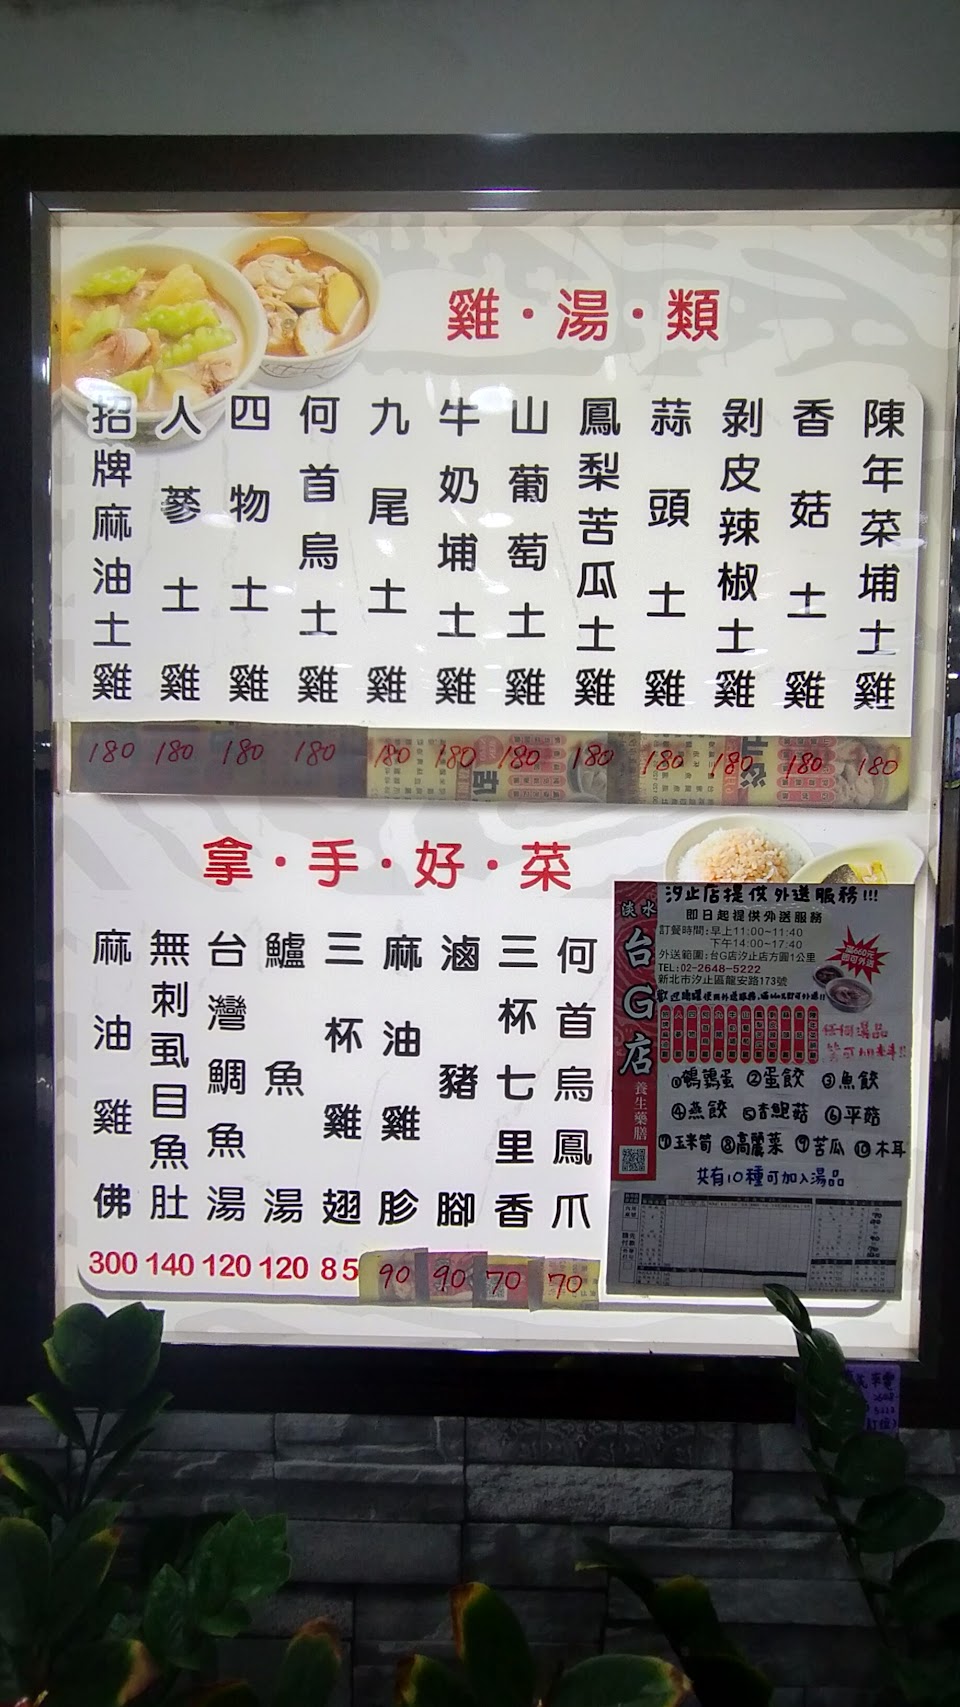 雞·湯·類
招牌麻油土雞
人蔘土雞
四物土雞
何首烏土雞
九尾土雞
牛奶埔土雞
山葡萄土雞
鳳梨苦瓜土雞
蒜頭土雞
剝皮辣椒土雞
香菇土雞
陳年菜埔土雞
180 180 180 180 180 180 180 180 180 180 180 180
拿·手·好·菜
麻油雞佛
無刺虱目魚肚
台灣鯛魚湯
鱸魚湯
三杯雞翅
麻油雞胗
滷豬腳
三杯七里香
何首烏鳳爪
300 140 120 120 85 90 90 70 70
淡水
台G店
養生藥膳
汐止店提供外送服務!!!
即日起提供外送服務
訂餐時間:早上11:00~11:40
下午14:00~17:40
外送範圍:台G店汐止店方圓1公里
TEL:02-2648-5222
新北市汐止區龍安路173號
滿660元
即可外送
任何湯品
皆可加煮!!
①鵪鶉蛋 ②蛋餃 ③魚餃
④燕餃 ⑤杏鮑菇 ⑥平菇
⑦玉米筍 ⑧高麗菜 ⑨苦瓜 ⑩木耳
共有10種可加入湯品